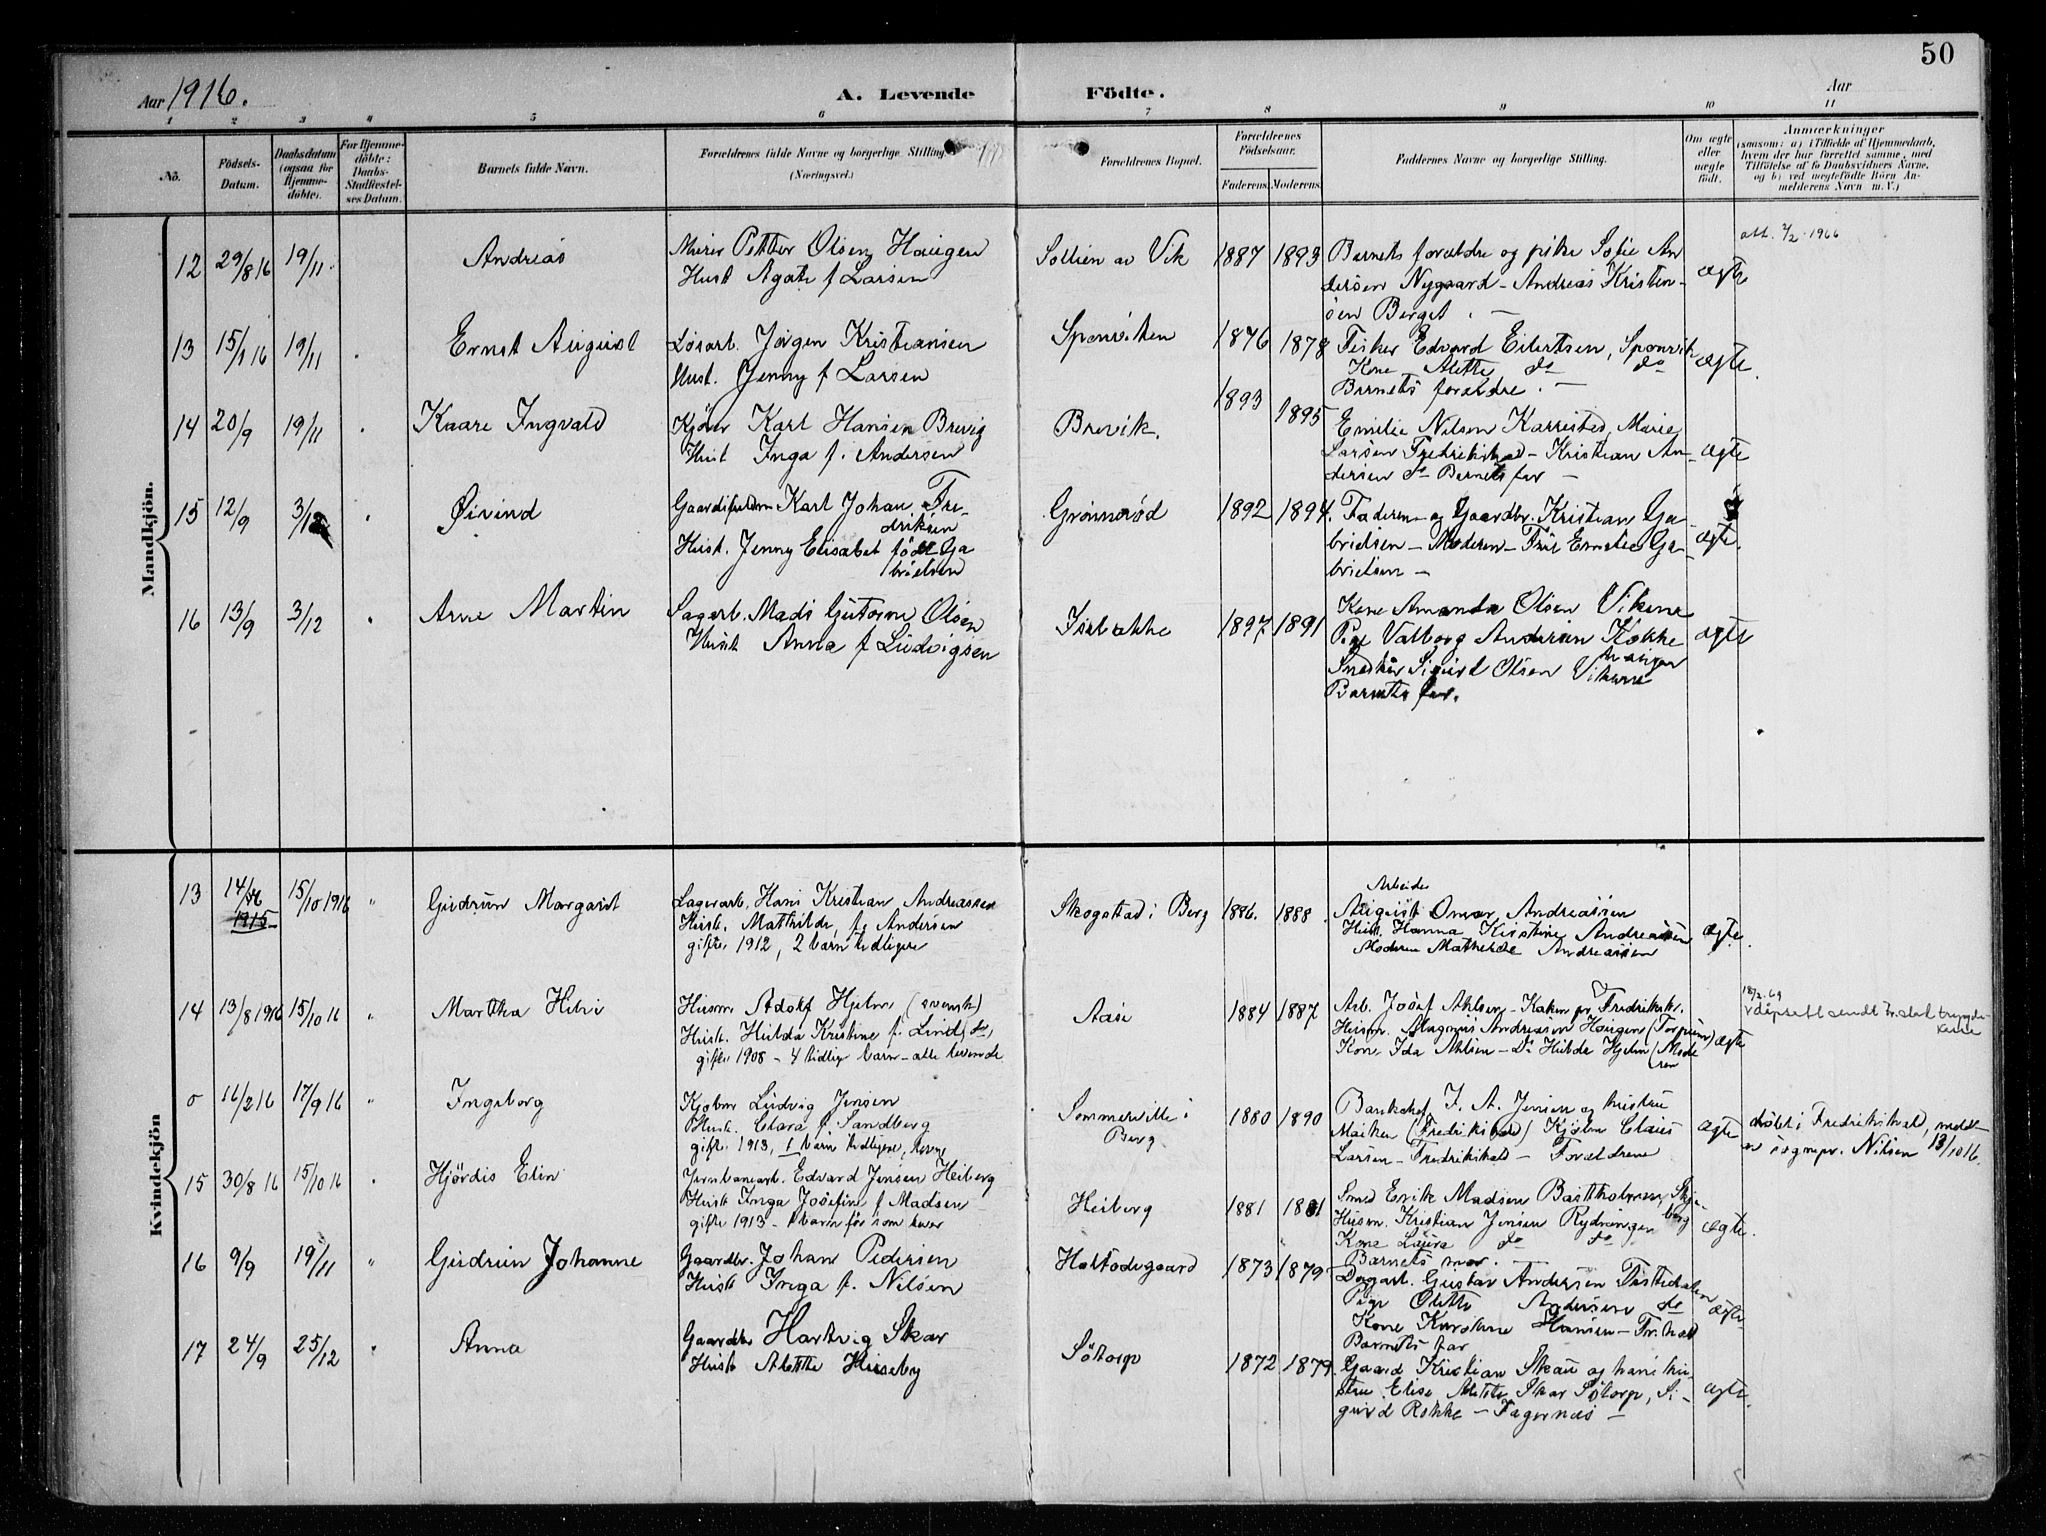 50
Aar 1916.
A. Levende Födte.
Aar
1 2 3 4 5 6 7 8 9 10 11
No.
Födsels-Datum.
Daabsdatum (ogsaa for Hjemmedöbte).
For Hjemmedöbte: Daabs-Stadfæstelses Datum.
Barnets fulde Navn.
Forældrenes fulde Navne og borgerlige Stilling (Næringsvei.)
Forældrenes Bopæl.
Forældrenes Födselsaar.
Faderens. Moderens.
Faddernes Navne og borgerlige Stilling.
Om ægte eller uægte födt.
Anmærkninger
(saasom: a) i Tilfælde af Hjemmedaab, hvem der har forrettet samme, med Tilföielse af to Daabsvidners Navne, og b) ved uægtefödte Börn Anmelderens Navn m. V.)
Mandkjön.
12 29/8 16 19/11 Andreas
Murer Petter Olsen Haugen
Hust Agate f Larsen
Sollien av Vik 1887 1893
Barnets forældre og pike Sofie An
dersen Nygaard - Andreas Kristen-
sen Berget. -
ægte
att. 7/2 - 1966
13 15/1 16 19/11 Ernst August
Løsarb. Jørgen Kristiansen
Hust. Jenny f Larsen
Sponviken 1876 1878
Fisker Edvard Eilertsen, Sponvik
Kone Alette do do
Barnets forældre. -
ægte.
14 20/9 19/11 Kaare Ingvald
Karl Hansen Brevig
Hust Inga f. Andersen
Brevik. 1893 1895
Emilie Nilsen Karrestad, Marie
Larsen Fredrikshald - Kristian An-
dersen do Barnets far -
ægte
15 12/9 3/12 Øivind
Karl Johan Fre-
driksen
Hust. Jenny Elisabet född Ga
brielsen
Grønnerød 1892 1894.
Faderen og Gaardbr. Kristian Ga-
brielsen - Moderen - Frk Emelie Ga-
brielsen -
ægte.
16 13/9 3/12 Arne Martin
Sagarb. Mads Gutorm Olsen
Hust Anna f Ludvigsen
Isebakke 1897 1891
Kone Amanda Olsen Vikene
Pige Valborg Andersen Kokke
Snedker Sigurd Olsen Vikene
Barnets far.
ægte
Kvindekjön
13 14/ 1915 15/10 1916 Gudrun Margarit
Lagerarb. Hans Kristian Andreassen
Hustr. Mathilde, f. Andersen
gifte 1912, 2 barn tidligere
Skogstad i Berg 1886. 1888.
Arbeider
August Omar Andreassen
Hust. Hanna Kristine Andreassen
Moderen Mathilde Andreassen
ægte.
14 13/8 1916 15/10 16 Martha Helvi
Husm Adolf Hjelm (svensk)
Hustr. Hulda Kristine f. Lind, do,
gifte 1908 - 4 tidlige barn - alle levende
Aase 1884 1887
Arb. Josef Ahlsen - Kaken pr. Fredrikshz.
Husm. Magnus Andreassen Haugen (Torpum)
Kone Ida Ahlsen - Do Hulda Hjelm (Mode
ren
ægte
18/2.69
dåpsatt. sendt Fr.stad trygde-
kasse
o 16/2 16 17/9 16 Ingeborg
Kjøbm Ludvig Jensen
Hustr. Clara f Sandberg
gifte 1913, 1 barn tidligere, leve
Sommerville i
Berg
1880 1890
Bankchef J. A. Jensen og hustru
Maiken (Fredrikshald) Kjøbm Claus
Larsen - Fredrikshald - Forældrene
ægte
døbt i Fredrikshald, meldt
av sognepr. Nilsen 13/10 16.
15 30/8 16 15/10 16 Hjördis Elin
Jernbanearb. Edvard Jensen Heiberg
Hustr Inga Josefine f Madsen
gifte 1913 - 1 barn før som lever
Heiberg 1881 1881
Smed Erik Madsen Bartholomm, Skje-
berg
Husm. Kristian Jensen Rydningen
Kone Laura do do
Barnets mor.
ægte.
16 9/9 19/11 Gudrun Johanne
Gaardbr. Johan Pedersen
Hustr Inga f. Nilsen
1873 1879
Dagarb. Gustav Andersen Tistedalen
Pige Olette Andersen do
Kone Karoline Hansen - Fr.hald
Barnets far
ægte.
17 24/9 25/12 Anna
Gaardbr Hartvig Skar
Hustr Alette Huseby
Søtorp 1872 1879.
Gaard Kristian Skau og hans hu-
stru Elise, Alette Skar Søtorp, Si-
gurd Rokke - Fagernæs -
ægte.